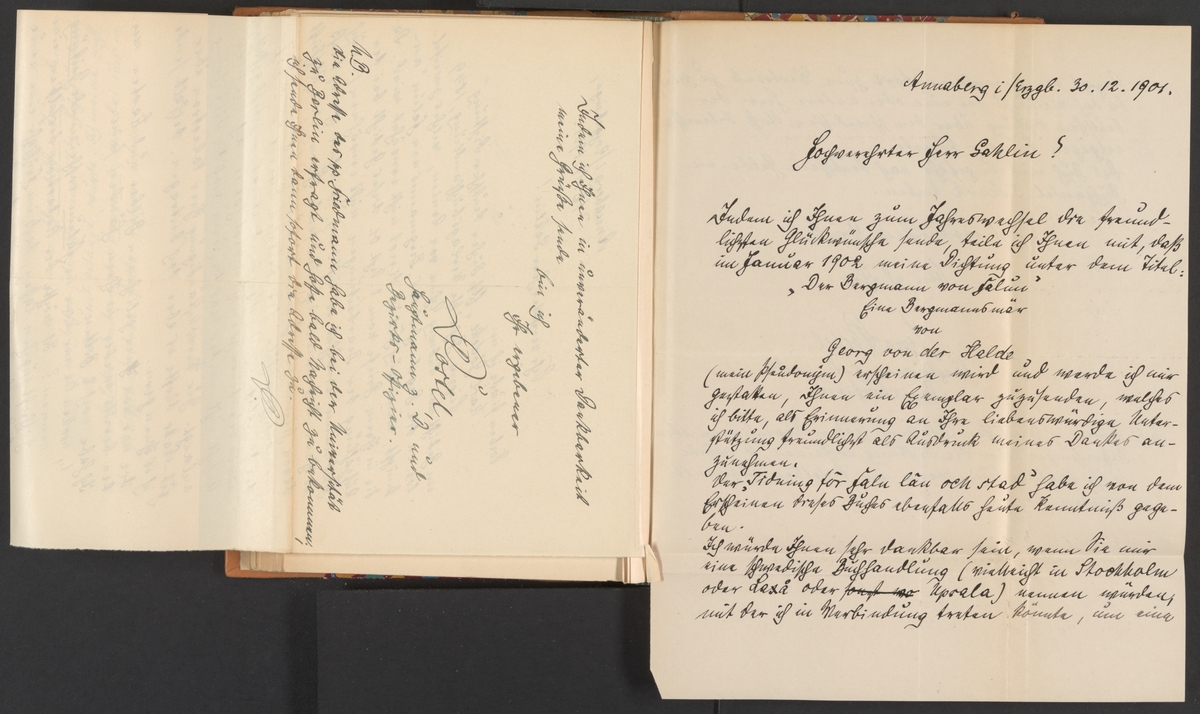 Annaberg i/Erzgb. 30.12.1901.
Hochverehrter Herr Sahlin!
Indem ich Ihnen zum Jahreswechsel die freund-
lichsten Glückwünsche sende, teile ich Ihnen mit, daß
im Januar 1902 meine Dichtung unter dem Titel:
„Der Bergmann von Falun"
Eine Bergmannsmär
von
Georg von der Halde
(mein Pseudonym) erscheinen wird und werde ich mir
gestatten, Ihnen ein Exemplar zuzusenden, welches
ich bitte, als Erinnerung an Ihre liebenswürdige Unter-
stützung freundlichst als Ausdruck meines Dankes an-
zunehmen.
Der Tidning för Falu län och stad habe ich von dem
Erscheinen dieses Buches ebenfalls heute Kenntniß gege-
ben.
Ich würde Ihnen sehr dankbar sein, wenn Sie mir
eine schwedische Buchhandlung (vielleicht in Stockholm
oder Laxå oder sonst wo Upsala) nennen würden,
mit der ich in Verbindung treten könnte, um eine
Indem ich Ihnen in unveränderter Dankbarkeit
meine Grüße sende
bin ich
Ihr ergebener
Hauptmann z. D. und
Bezirks-Offizier.
NB.
Die Adresse des pp Friedmann habe ich bei der Universität
zu Berlin erfragt und hoffe bald Nachricht zu bekommen,
ich sende Ihnen dann sofort die Adresse zu.